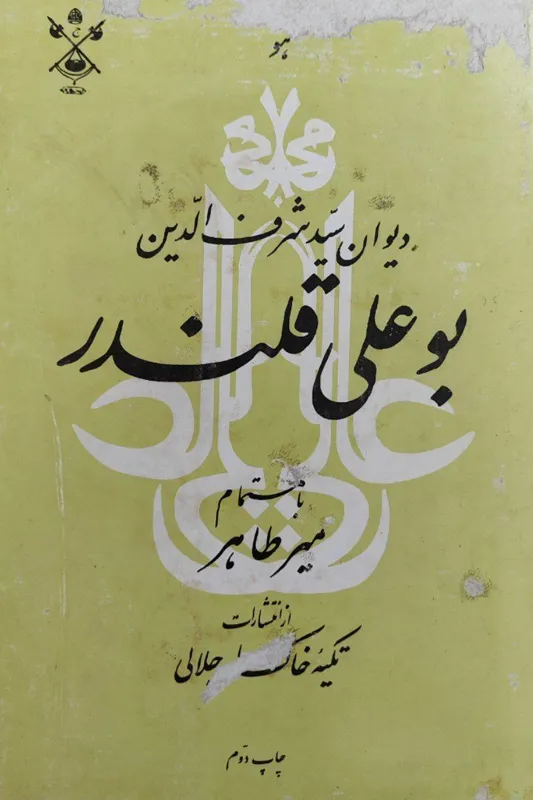 هو
دیوان سیّد شرف الدّین
بو علی قلندر
باهتمام
میر طاهر
از انتشارات
تکیهٔ خاکسار جلالی
چاپ دوّم